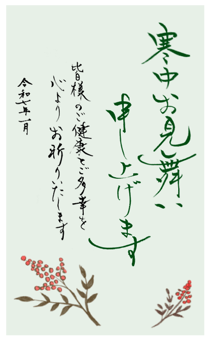 寒中お見舞い
申し上げます
皆様のご健康とご多幸を
心よりお祈りいたします
令和七年一月